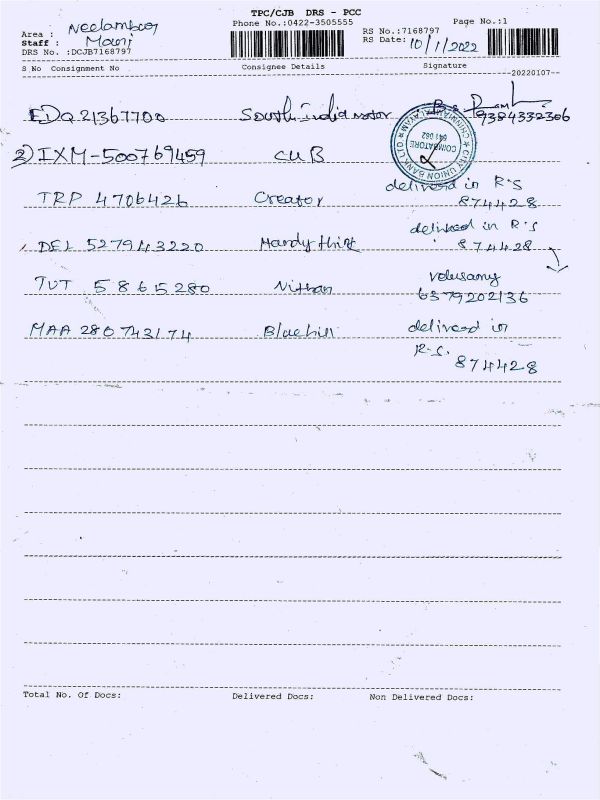 TPC/CJB DRS - PCC
Phone No.:0422-3505555
Page No.:1
Area : Neelambur
Staff : Mani
DRS No. :DCJB7168797
RS No.:7168797
RS Date: 10/1/2022
S No Consignment No Consignee Details Signature
20220107
EDQ 21367700 South India motor 9384332306
2) IXM-500769459 CUB
CITY UNION BANK LTD
CHINNIAMPALAYAM
COIMBATORE
641 062
TRP 4706426 Creator delivered in R.S
874428
DEL 527943220 Handy thint delivered in R.S
874428
TUT 5865280 Nithan Velusamy
6379202136
MAA 280743174 Bluehill delivered in
R.S.
874428
Total No. Of Docs: Delivered Docs: Non Delivered Docs: